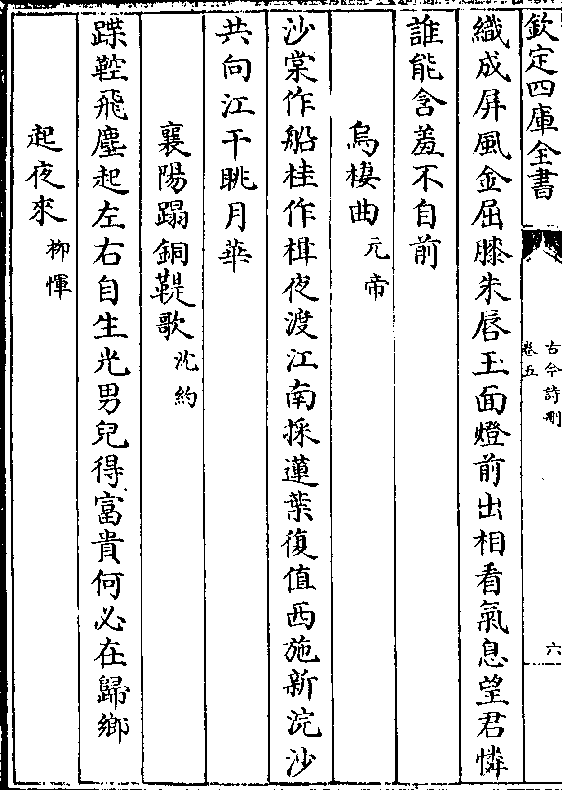 欽定四庫全書
古今詩刪
卷五
六
織成屏風金屈膝朱唇玉面燈前出相看氣息望君憐
誰能含羞不自前
烏棲曲 元帝
沙棠作船桂作楫夜渡江南採蓮葉復值西施新浣沙
共向江干眺月華
襄陽蹋銅鞮歌 沈約
蹀鞚飛塵起左右自生光男兒得富貴何必在歸鄉
起夜來 柳惲